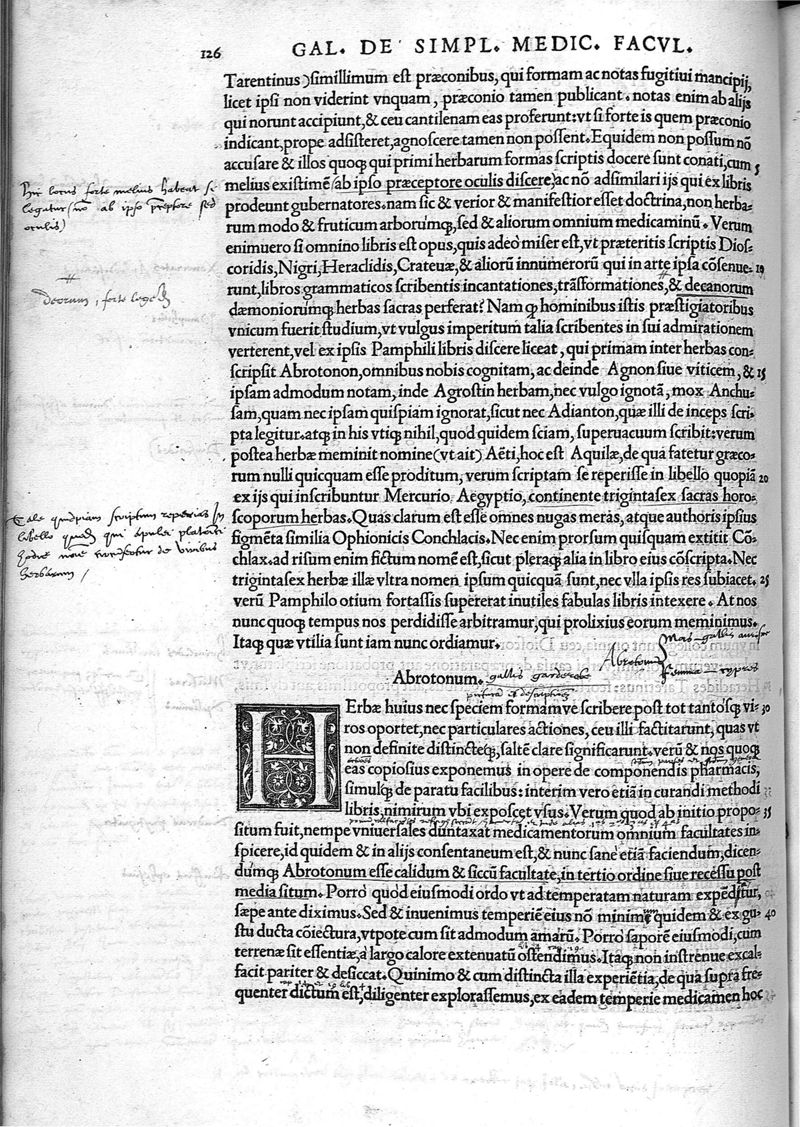 126
GAL. DE SIMPL. MEDIC. FACVL.
Tarentinus )simillimum est præconibus, qui formam ac notas fugitiui mancipij,
licet ipsi non viderint vnquam, præconio tamen publicant. notas enim ab alijs
qui norunt accipiunt,& ceu cantilenam eas proferunt: vt si forte is quem præconio
indicant, prope adsisteret, agnoscere tamen non possent. Equidem non possum nõ
accusare & illos quoq; qui primi herbarum formas scriptis docere sunt conati, cum 5
melius existimẽ (ab ipso præceptore oculis discere) ac nõ adsimilari ijs qui ex libris
prodeunt gubernatores. nam sic & verior & manifestior esset doctrina, non herba-
rum modo & fruticum arborúmq;, sed & aliorum omnium medicaminũ. Verum
enimuero si omnino libris est opus, quis adeo miser est, vt præteritis scriptis Dios-
coridis, Nigri, Heraclidis, Crateuæ, & aliorũ innumerorũ qui in arte ipsa cõsenue- 10
runt, libros grammaticos scribentis incantationes, trãsformationes, & decanorum
dæmoniorúmq; herbas sacras perferat? Nam q; hominibus istis præstigiatoribus
vnicum fuerit studium, vt vulgus imperitum talia scribentes in sui admirationem
verterent, vel ex ipsis Pamphili libris discere liceat, qui primam inter herbas con-
scripsit Abrotonon, omnibus nobis cognitam, ac deinde Agnon siue viticem, & 15
ipsam admodum notam, inde Agrostin herbam, nec vulgo ignotã, mox Anchu-
sam, quam nec ipsam quispiam ignorat, sicut nec Adianton, quæ illi de inceps scri-
pta legitur. atq; in his vtiq; nihil, quod quidem sciam, superuacuum scribit: verum
postea herbæ meminit nomine (vt ait) Aëti, hoc est Aquilæ, de qua fatetur græco-
rum nulli quicquam esse proditum, verum scriptam se reperisse in libello quopiã 20
ex ijs qui inscribuntur Mercurio Aegyptio, continente trigintasex sacras horo-
scoporum herbas. Quas clarum est esse omnes nugas meras, atque authoris ipsius
figmẽta similia Ophionicis Conchlacis. Nec enim prorsum quisquam extitit Cõ-
chlax. ad risum enim fictum nomẽ est, sicut pleraq; alia in libro eius cõscripta. Nec
trigintasex herbæ illæ vltra nomen ipsum quicquã sunt, nec vlla ipsis res subiacet. 25
verũ Pamphilo otium fortassis supererat inutiles fabulas libris intexere. At nos
nunc quoq; tempus nos perdidisse arbitramur, qui prolixius eorum meminimus.
Itaq; quæ vtilia sunt iam nunc ordiamur.
Abrotonum. gallis garderobe
HErbæ huius nec speciem formamve scribere post tot tantosq; vi- 30
ros oportet, nec particulares actiones, ceu illi factitarunt, quas vt
non definite distincteq;, saltẽ clare significarunt. verũ & nos quoq;
eas copiosius exponemus in opere de componendis pharmacis,
simulq; de paratu facilibus: interim vero etiã in curandi methodi
libris, nimirum vbi exposcet vsus. Verum quod ab initio propo- 35
situm fuit, nempe vniuersales duntaxat medicamentorum omnium facultates in-
spicere, id quidem & in alijs consentaneum est, & nunc sane etiã faciendum; dicen-
dúmq; Abrotonum esse calidum & siccũ facultate, in tertio ordine siue recessu post
media situm. Porro quod eiusmodi ordo vt ad temperatam naturam expẽditur,
sæpe ante diximus. Sed & inuenimus temperiẽ eius nõ minime quidem & ex gu- 40
stu ducta cõiectura, vtpote cum sit admodum amarũ. Porro saporẽ eiusmodi, cum
terrenæ sit essentiæ, a largo calore extenuatũ ostendimus. Itaq; non instrenue excal-
facit pariter & desiccat. Quinimo & cum distincta illa experiẽtia, de qua supra fre-
quenter dictum est, diligenter explorassemus, ex eadem temperie medicamen hoc
Hic locus forte melius habeat si
legatur (nõ ab ipso preceptore sed
oculis)
deorum, forte lege
Tale quidpiam scriptum reperias in
libello
herbarum
Abrotonum